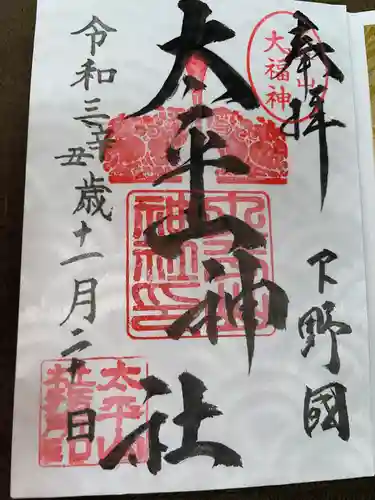 奉拝
下野國
太平山神社
令和三辛丑歳十一月二十日
大福神
太平山
神社印
太平山